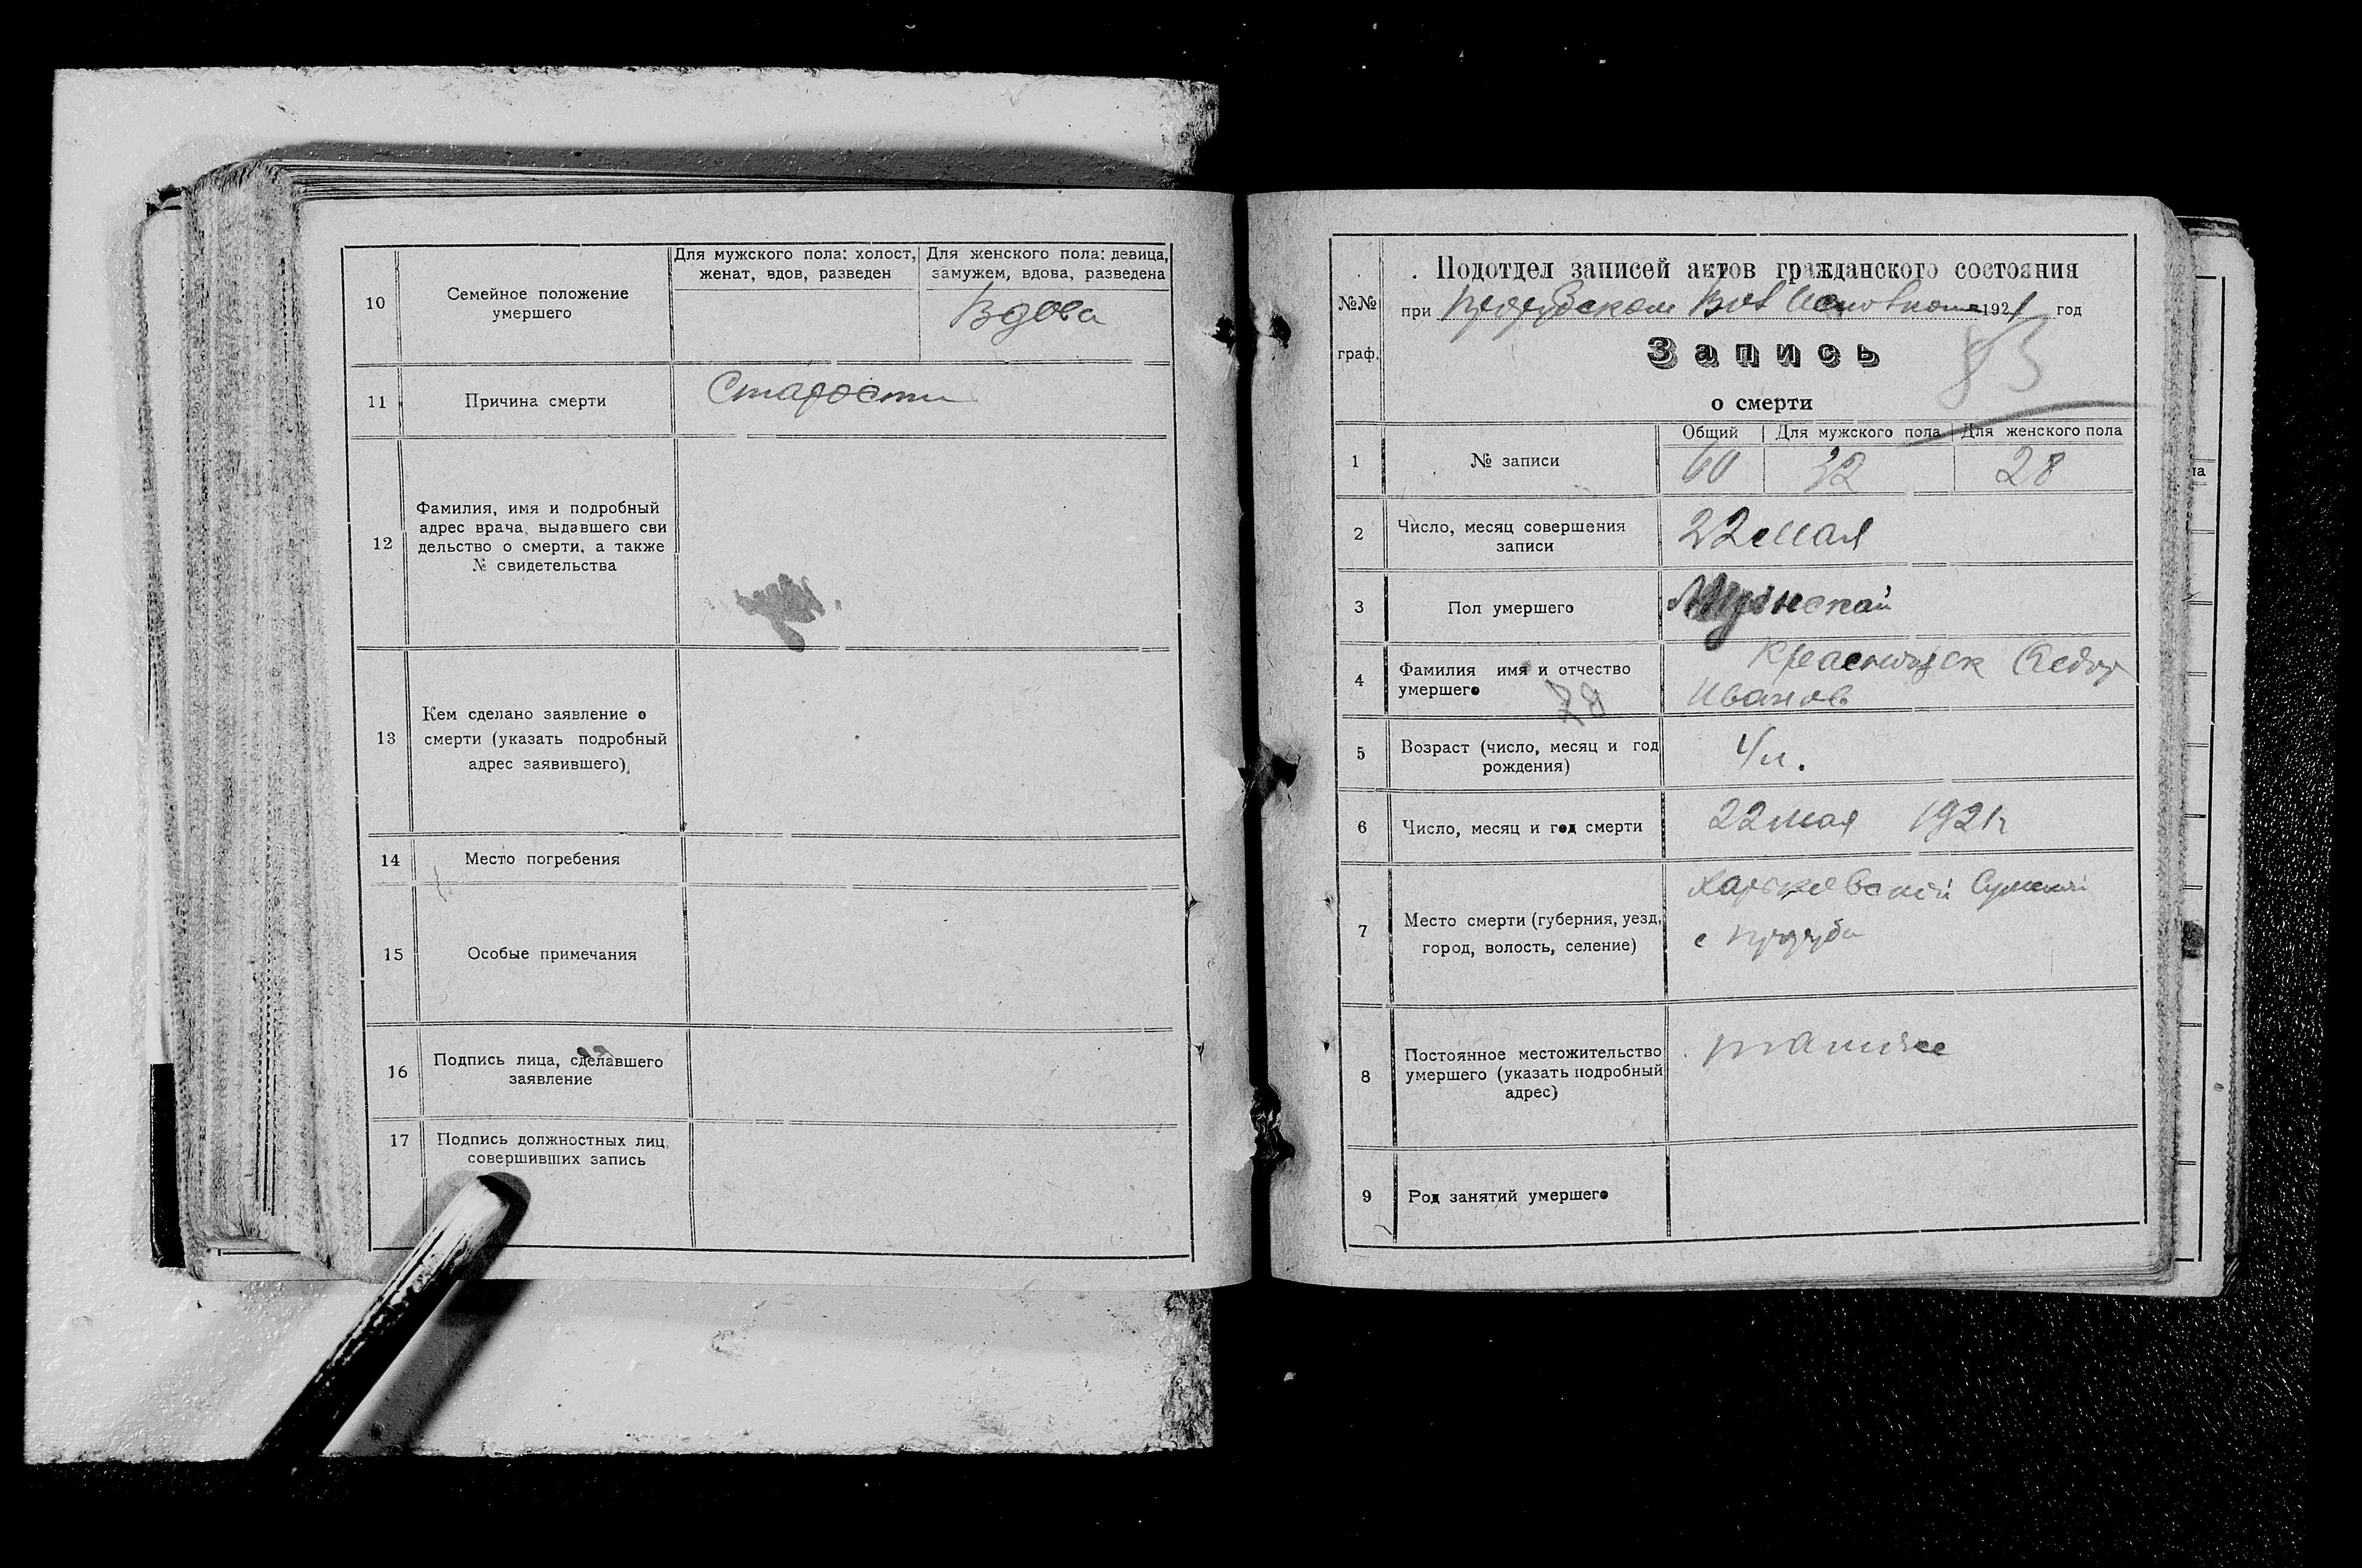 10
Семейное положение
умершего
Для мужского пола: холост,
женат, вдов, разведен
Для женского пола: девица,
замужем, вдова, разведена
Вдова
11
Причина смерти
Старости
12
Фамилия, имя и подробный
адрес врача, выдавшего сви
дельство о смерти, а также
№ свидетельства
13
Кем сделано заявление о
смерти (указать подробный
адрес заявившего)
14
Место погребения
15
Особые примечания
16
Подпись лица, сделавшего
заявление
17
Подпись должностных лиц,
совершивших запись
№№
граф.
Подотдел записей актов гражданского состояния
при 1921 год
Запись
83
о смерти
1
№ записи
Общий
Для мужского пола
Для женского пола
60
32
28
2
Число, месяц совершения
записи
22 мая
3
Пол умершего
Мужской
4
Фамилия имя и отчество
умершего
Федор
Иванов
5
Возраст (число, месяц и год
рождения)
6
Число, месяц и год смерти
22 мая 1921г
7
Место смерти (губерния, уезд,
город, волость, селение)
Харьковской Сумской
с
8
Постоянное местожительство
умершего (указать подробный
адрес)
9
Род занятий умершего